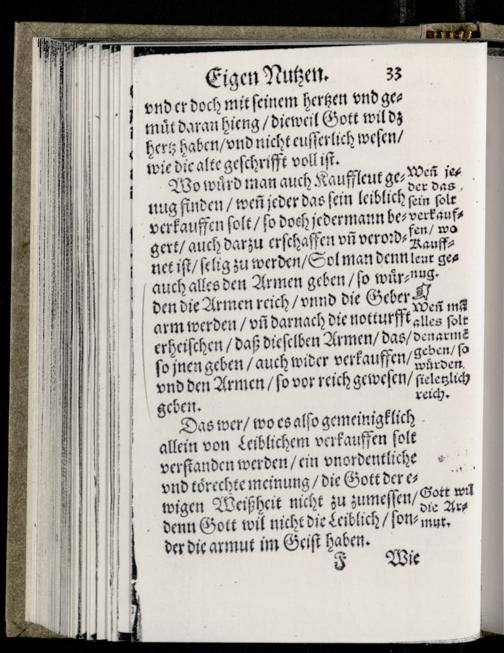 Eigen Nutzen. 33
vnd er doch mit seinem hertzen vnd ge-
müt daran hieng / dieweil Gott wil dz
hertz haben / vnd nicht eusserlich wesen /
wie die alte geschrifft voll ist.
Wo würd man auch Kauffleut ge-
nug finden / weñ jeder das sein leiblich
verkauffen solt / so doch jedermann be-
gert / auch darzu erschaffen vñ verord-
net ist / selig zu werden / Sol man denn
auch alles den Armen geben / so wür-
den die Armen reich / vnnd die Geber
arm werden / vñ darnach die notturfft
erheischen / daß dieselben Armen / das /
so jnen geben / auch wider verkauffen /
vnd den Armen / so vor reich gewesen /
geben.
Weñ je-
der das
sein solt
verkauf-
fen / wo
Kauff-
leut ge-
nug.
Weñ mā
alles solt
den armē
geben / so
würden
sie letzlich
reich.
Das wer / wo es also gemeinigklich
allein von Leiblichem verkauffen solt
verstanden werden / ein vnordentliche
vnd törechte meinung / die Gott der e-
wigen Weißheit nicht zu zumessen /
denn Gott wil nicht die Leiblich / son-
der die armut im Geist haben.
Gott wil
die Ar-
mut.
J Wie